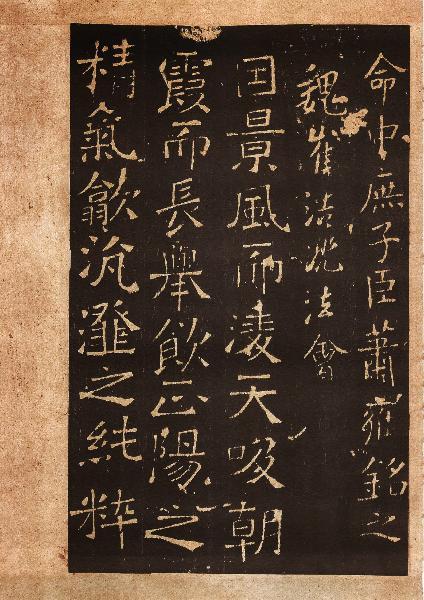 命中庶子臣蕭
銘之
魏
法
法會
因景風而凌天吸朝
霞而長舉飲正陽之
精氣歙沆瀣之純粹